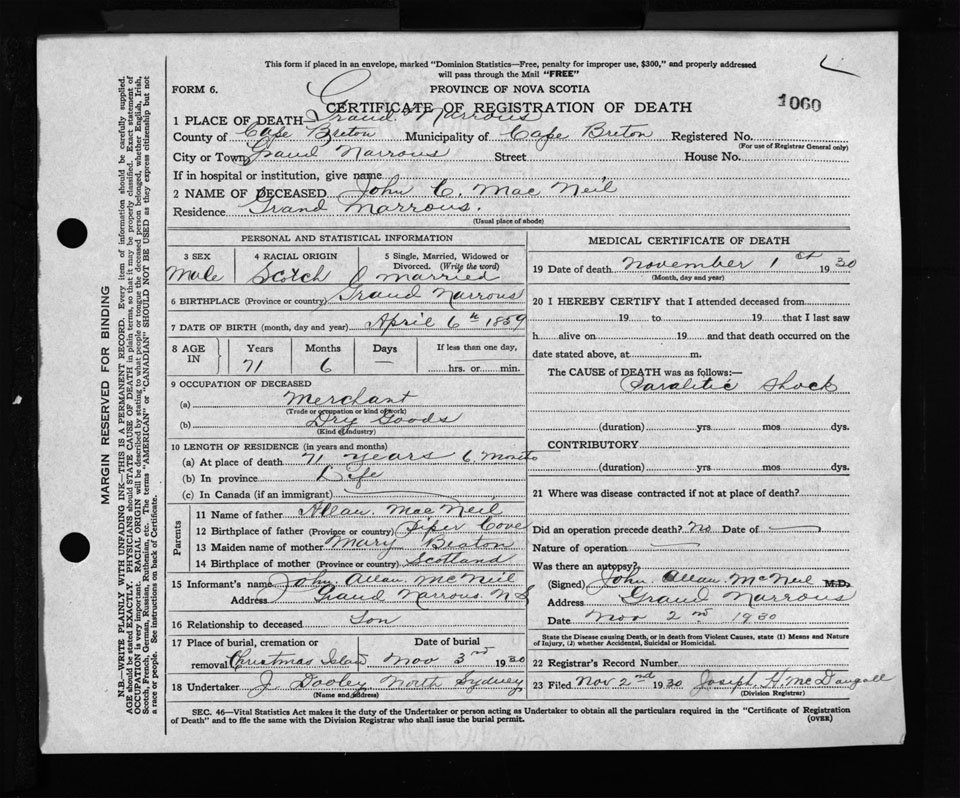 This form if placed in an envelope, marked "Dominion Statistics—Free, penalty for improper use, $300," and properly addressed
will pass through the Mail "FREE"
FORM 6. PROVINCE OF NOVA SCOTIA
CERTIFICATE OF REGISTRATION OF DEATH 1060
1 PLACE OF DEATH Grand Narrows
County of Cape Breton Municipality of Cape Breton Registered No.
(For use of Registrar General only)
City or Town Grand Narrows Street House No.
If in hospital or institution, give name
2 NAME OF DECEASED John C. Mac Neil
Residence Grand Narrows.
(Usual place of abode)
PERSONAL AND STATISTICAL INFORMATION
3 SEX 4 RACIAL ORIGIN 5 Single, Married, Widowed or
Divorced. (Write the word)
Male Scotch Married
6 BIRTHPLACE (Province or country) Grand Narrows
7 DATE OF BIRTH (month, day and year) April 6th 1859
8 AGE IN Years Months Days If less than one day,
71 6 — hrs. or min.
9 OCCUPATION OF DECEASED
(a) Merchant
(Trade or occupation or kind of work)
(b) Dry Goods
(Kind of industry)
10 LENGTH OF RESIDENCE (in years and months)
(a) At place of death 71 years 6. Months
(b) In province Life
(c) In Canada (if an immigrant)
Parents
11 Name of father Allan. Mac Neil
12 Birthplace of father (Province or country) Piper Cove
13 Maiden name of mother Mary Beaton
14 Birthplace of mother (Province or country) Scotland
15 Informant's name John. Allan. McNeil
Address Grand Narrows. N S
16 Relationship to deceased Son
17 Place of burial, cremation or Date of burial
removal Christmas Island Nov 3rd 1930
18 Undertaker J. Dooley North Sydney
(Name and address)
MEDICAL CERTIFICATE OF DEATH
19 Date of death November 1st 1930
(Month, day and year)
20 I HEREBY CERTIFY that I attended deceased from
19 to 19 that I last saw
h alive on 19 and that death occurred on the
date stated above, at m.
The CAUSE of DEATH was as follows:—
Paralitic Shock
(duration) yrs. mos dys.
CONTRIBUTORY
(duration) yrs. mos. dys.
21 Where was disease contracted if not at place of death?
Did an operation precede death? No Date of —
Nature of operation —
Was there an autopsy?
(Signed) John Allan. McNeil M.D.
Address Grand Narrows
Date Nov 2nd 1930
State the Disease causing Death, or in death from Violent Causes, state (1) Means and Nature
of Injury, (2) whether Accidental, Suicidal or Homicidal.
22 Registrar's Record Number
23 Filed Nov 2nd 1930 Joseph. H. McDougall
(Division Registrar)
SEC. 46—Vital Statistics Act makes it the duty of the Undertaker or person acting as Undertaker to obtain all the particulars required in the "Certificate of Registration
of Death" and to file the same with the Division Registrar who shall issue the burial permit. (OVER)
MARGIN RESERVED FOR BINDING
N.B.—WRITE PLAINLY WITH UNFADING INK—THIS IS A PERMANENT RECORD. Every item of information should be carefully supplied.
AGE should be stated EXACTLY. PHYSICIANS should STATE CAUSE OF DEATH in plain terms, so that it may be properly classified. Exact statement of
OCCUPATION is very important. RACIAL ORIGIN will be described by stating to what people or tongue the deceased person belonged, whether English, Irish,
Scotch, French, German, Russian, Ruthenian, etc. The terms "AMERICAN" or "CANADIAN" SHOULD NOT BE USED as they express citizenship but not
a race or people. See instructions on back of Certificate.